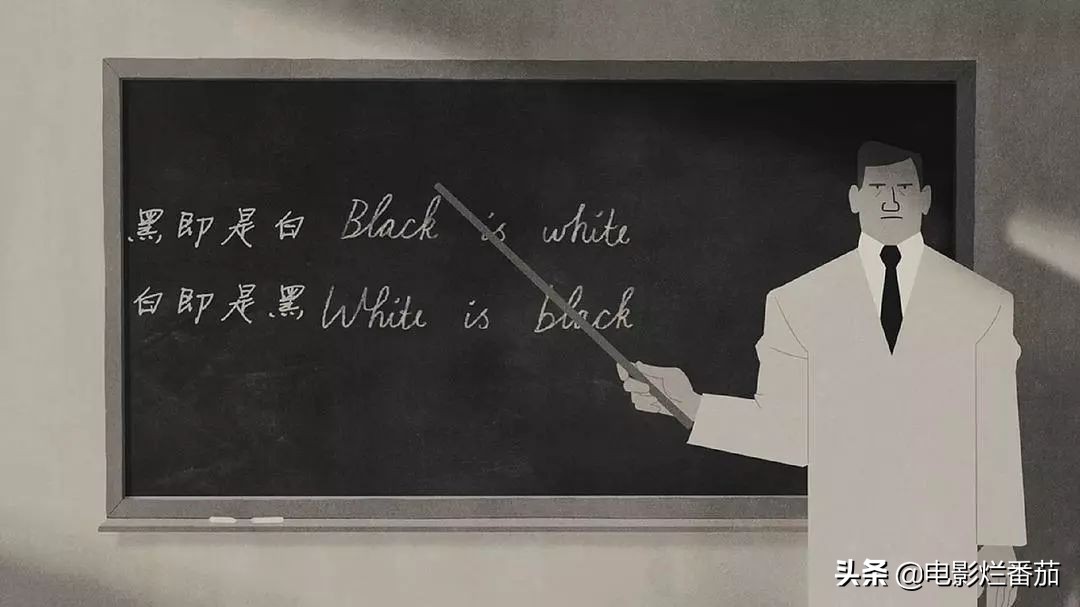 黑即是白 Black is white
白即是黑 White is black
头条 @电影烂番茄